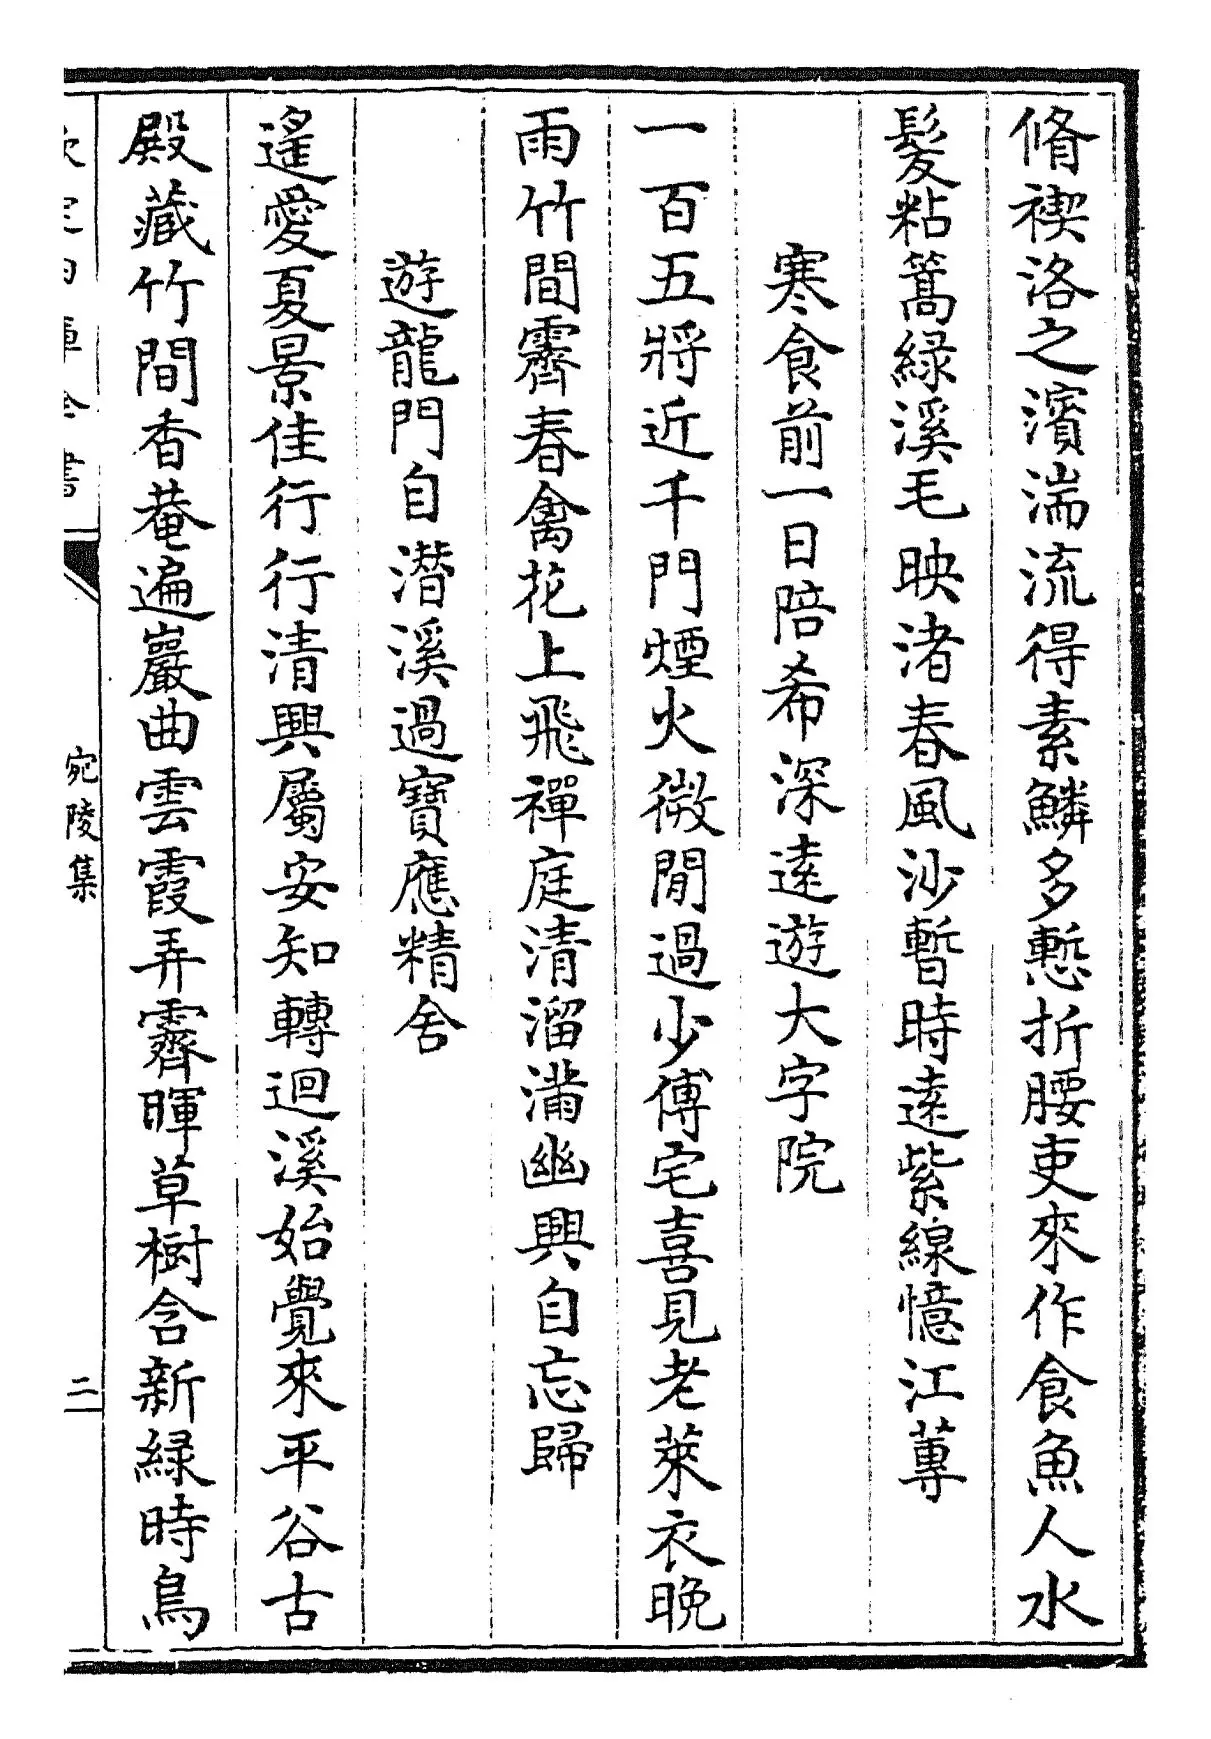 脩禊洛之濱湍流得素鱗多慙折腰吏來作食魚人水
髮粘篙綠溪毛映渚春風沙暫時遠紫線憶江蓴
寒食前一日陪希深遠遊大字院
一百五將近千門煙火微閒過少傅宅喜見老萊衣晚
雨竹間霽春禽花上飛禪庭清溜滿幽興自忘歸
遊龍門自潛溪過寶應精舍
遙愛夏景佳行行清興屬安知轉迴溪始覺來平谷古
殿藏竹間香菴遍巖曲雲霞弄霽暉草樹含新綠時鳥
欽定四庫全書
宛陵集
二